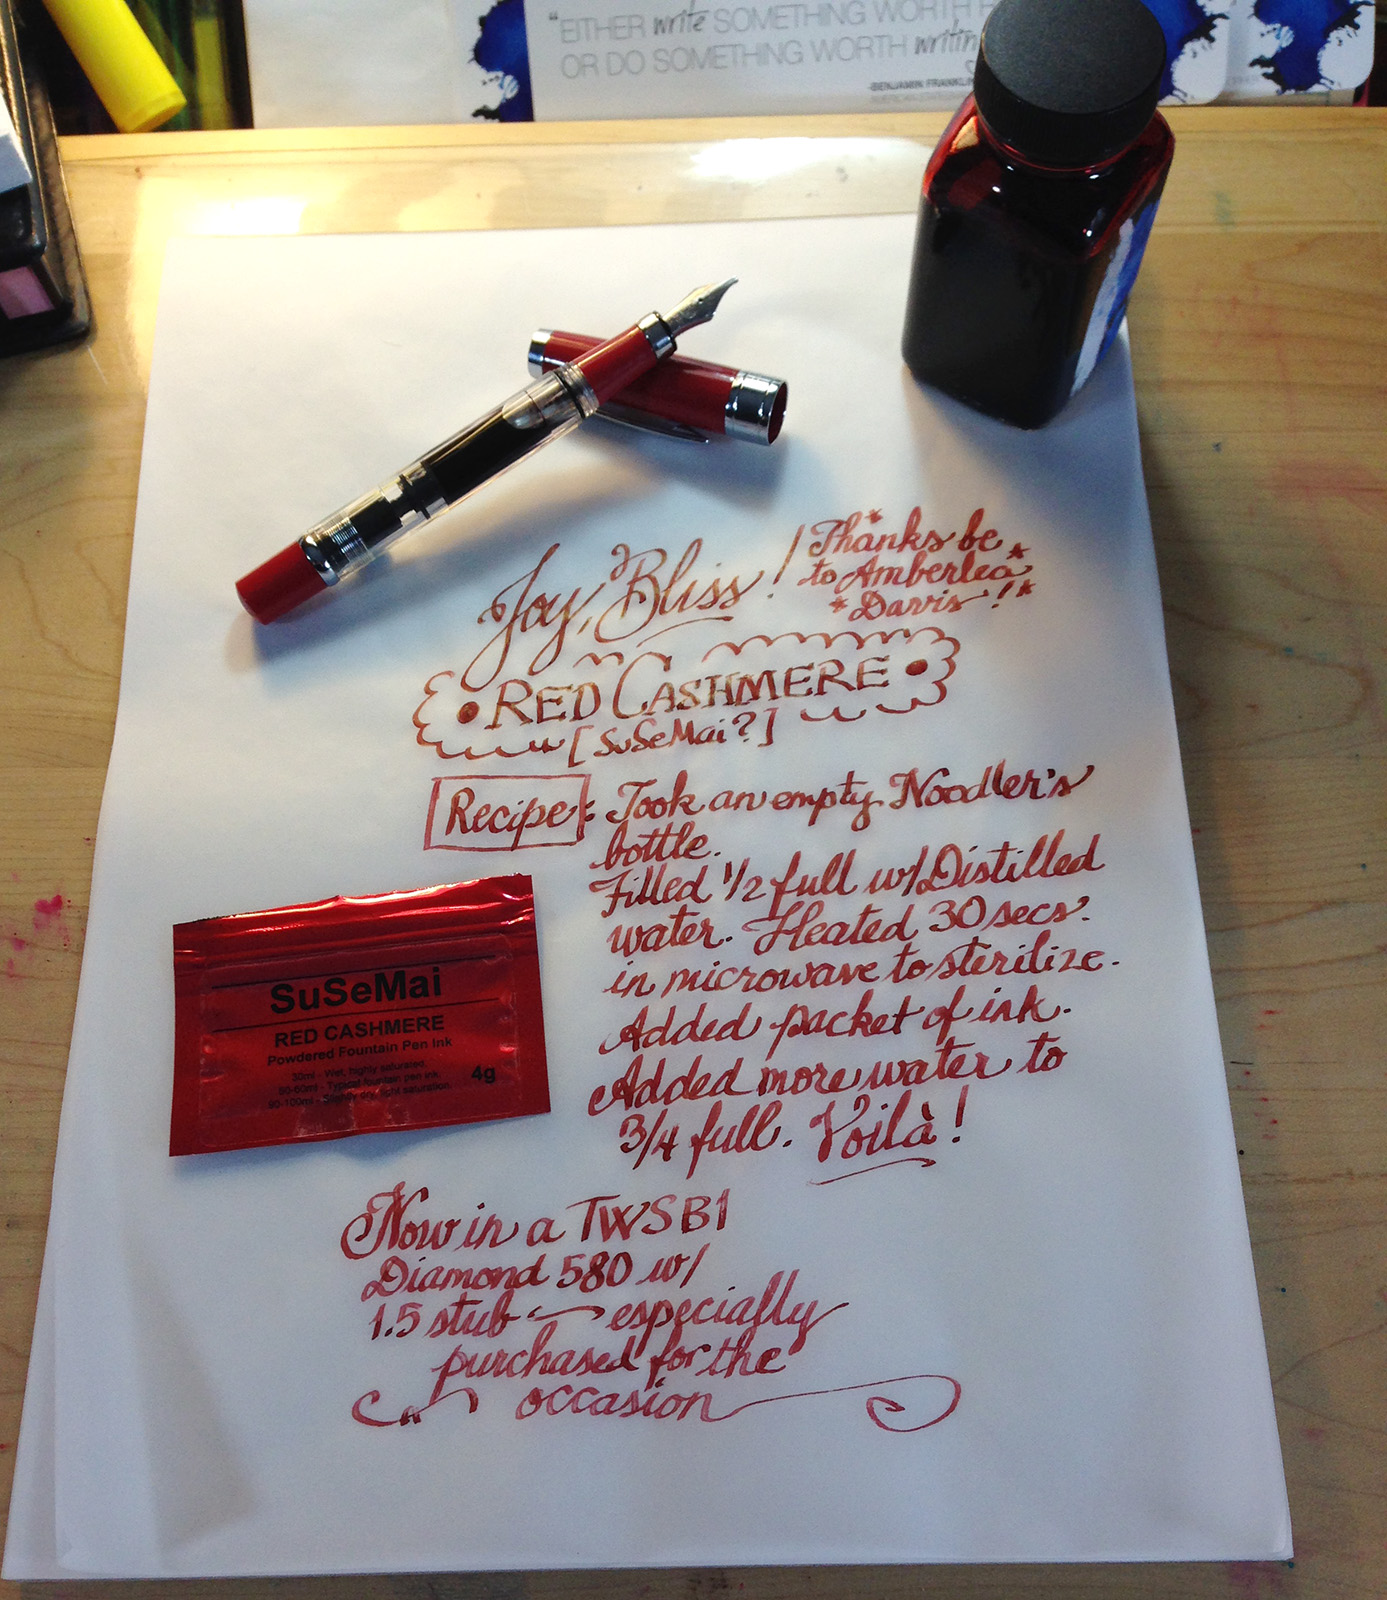 "EITHER write SOMETHING WORTH
OR DO SOMETHING WORTH writing
-BENJAMIN FRANKLIN
Joy, Bliss!
Thanks be
to Amberlea
Davis!
RED CASHMERE
[SuSeMai?]
Recipe: Took an empty Noodler's
bottle.
Filled 1/2 full w/Distilled
water. Heated 30 secs.
in microwave to sterilize.
Added packet of ink.
Added more water to
3/4 full. Voilà!
SuSeMai
RED CASHMERE
Powdered Fountain Pen Ink
30ml - Wet, highly saturated.
50-60ml - Typical fountain pen ink.
90-100ml - Slightly dry, light saturation.
4g
Now in a TWSBI
Diamond 580 w/
1.5 stub — especially
purchased for the
occasion